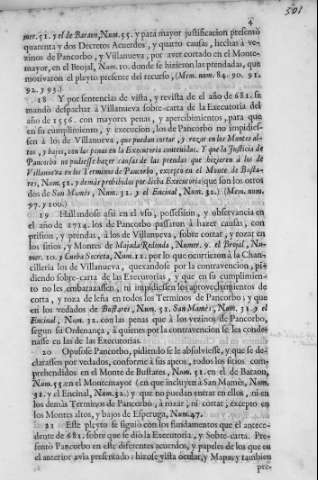 501
4
mer. 51. y el de Baraon, Num. 55. y para mayor justificacion presentò
quarenta y dos Decretos Acuerdos, y quatro causas, hechas à vezinos
de Pancorbo, y Villanueva, por aver cortado en el Montemayor,
en el Boojal, Num. 10. donde se hizieron las prendadas, que
motivaron el playto presente del recurso, (Mem. num. 84. 90. 91.
92. y 93.)
18 Y por sentencias de vista, y revista de el año de 681. se
mandò despachar à Villanueva sobre-carta de la Executoria del
año de 1556. con mayores penas, y apercibimientos, para que
en su cumplimiento, y execucion, los de Pancorbo no impidiessen
à los de Villanueva, que puedan cortar, y rozar en los Montes altos,
y baxos, con las penas en la Executoria contenidas. Y que la Justicia de
Pancorbo no pudiesse hazer causas de las prendas que hizieren à los de
Villanueva en los Terminos de Pancorbo, excepto en el Monte de Bustares,
Num. 51. y demàs prohibidos por dicha Executoria (que son los cotos
dos de San Mamès, Num. 31. y el Encinal, Num. 32.) (Mem. num.
97. y 200.)
19 Hallandose assi en el uso, possession, y observancia en
el año de 1714. los de Pancorbo passaron à hazer causas, con
prision, y prendas, à los de Villanueva, sobre cortar, y rozar en
los sitios, y Montes de Majada Redonda, Numer. 9. el Brojal, Numer.
10. y Cueba Secreta, Num. 12. por lo que ocurrieron à la Chancilleria
los de Villanueva, quexandose por la contravencion, pidiendo
sobre-carta de las Executorias, y que en su cumplimiento
no les embarazassen, ni impidiessen los aprovechamientos de
corta, y roza de leña en todos los Terminos de Pancorbo; y que
en los vedados de Bustares, Num. 51. San Mamès, Num. 31. y el
Encinal, Num. 32. con las penas que à los vezinos de Pancorbo,
segun su Ordenança, à quienes por la contravencion se les condenasse
en las de las Executorias.
20 Opusose Pancorbo, pidiendo se le absolviesse, y que se declarassen
por vedados, conforme à sus apeos, todos los sitios comprehendidos
en el Monte de Bustares, Num. 51. en el de Baraon,
Num. 55. en el Montemayor (en que incluyen à San Mamès, Num.
31. y el Encinal, Num. 32.) y que no puedan entrar en ellos, ni en
los demàs Terminos de Pancorbo, à rozar, ni cortar, excepto en
los Montes altos, y baxos de Esperuga, Num. 47.
21 Este pleyto se siguiò con los fundamentos que el antecedente
de 681. sobre que se diò la Executoria, y Sobre-carta. Presentò
Pancorbo en este diferentes acuerdos, y papeles de los que en
el anterior avia presentado: hizose vista ocular, y Mapas y tambien
pre-